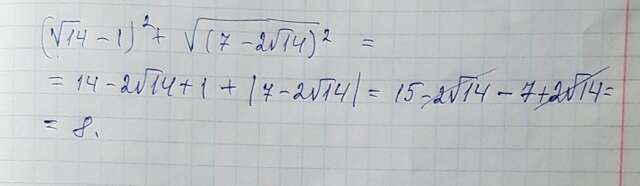 (√14 - 1)² + √(7 - 2√14)² =
= 14 - 2√14 + 1 + |7 - 2√14| = 15 - 2√14 - 7 + 2√14 =
= 8.